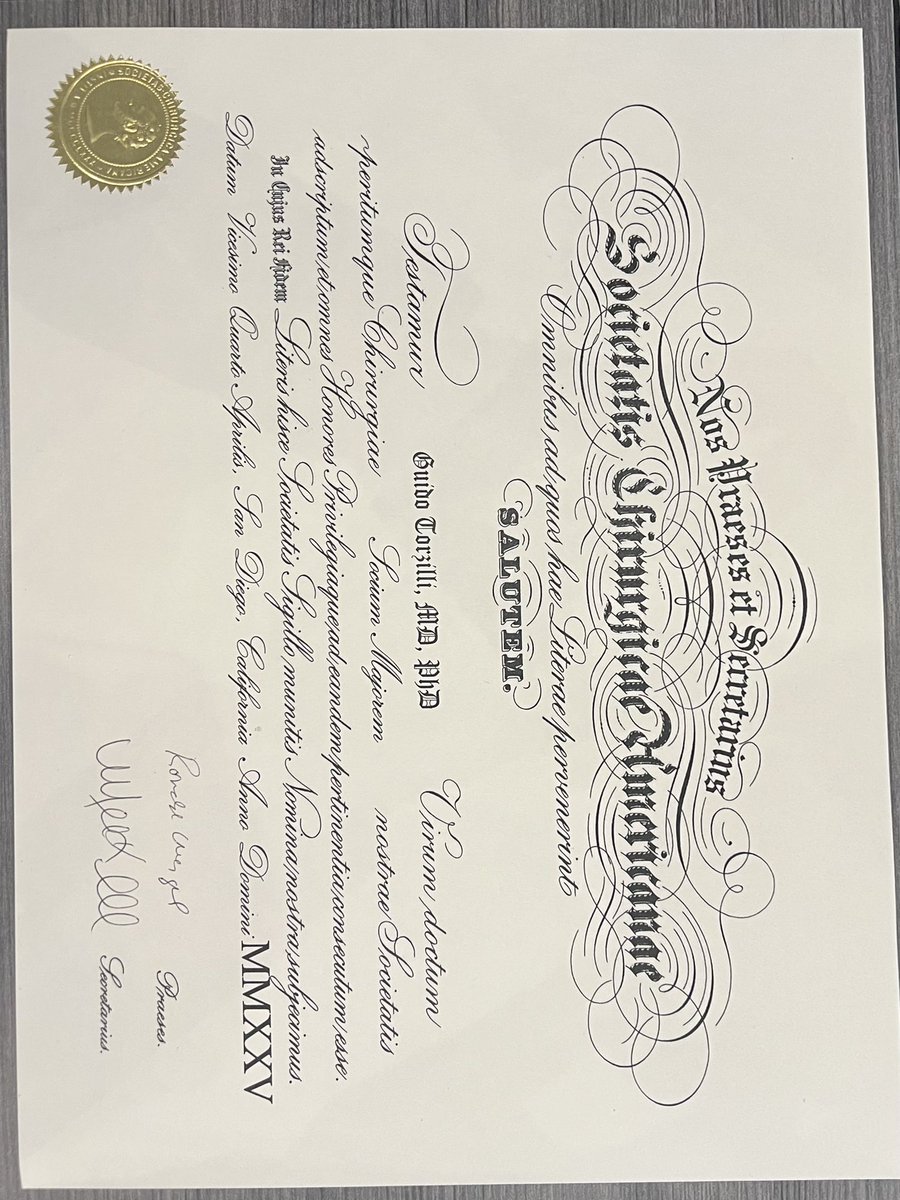 Nos Praeses et Secretarius
Societatis Chirurgicae Americanae
Omnibus, ad quos hae Literae pervenerint
SALUTEM.
Testamur Guido Torzilli, MD, PhD Virum, doctum
peritumque Chirurgiae Socium Majorem nostrae Societatis
adscriptum, et, omnes Honores Privilegiaque, ad, eandem, pertinentia, consecutum, esse.
In Cujus Rei Fidem Literis hisce Societatis Sigillo munitis Nomina, nostra, subjecimus.
Datum Vicesimo Quarto Aprilis, San Diego, California Anno Domini MMXXV
Praeses.
Secretarius.
SOCIETAS CHIRURGICA AMERICANA